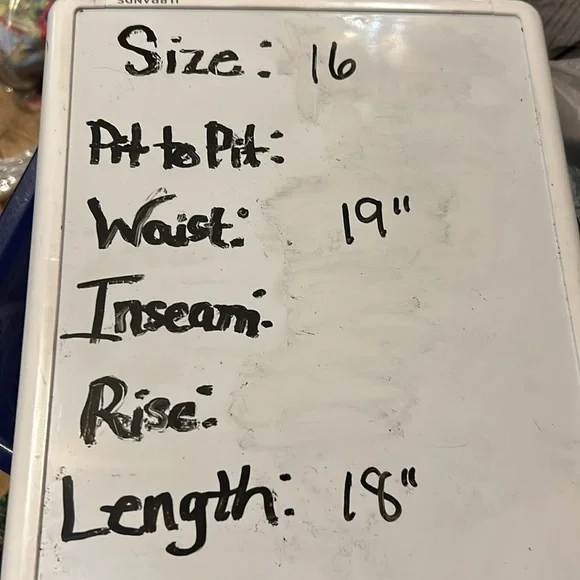 Size: 16
Pit to Pit:
Waist: 19"
Inseam:
Rise:
Length: 18"